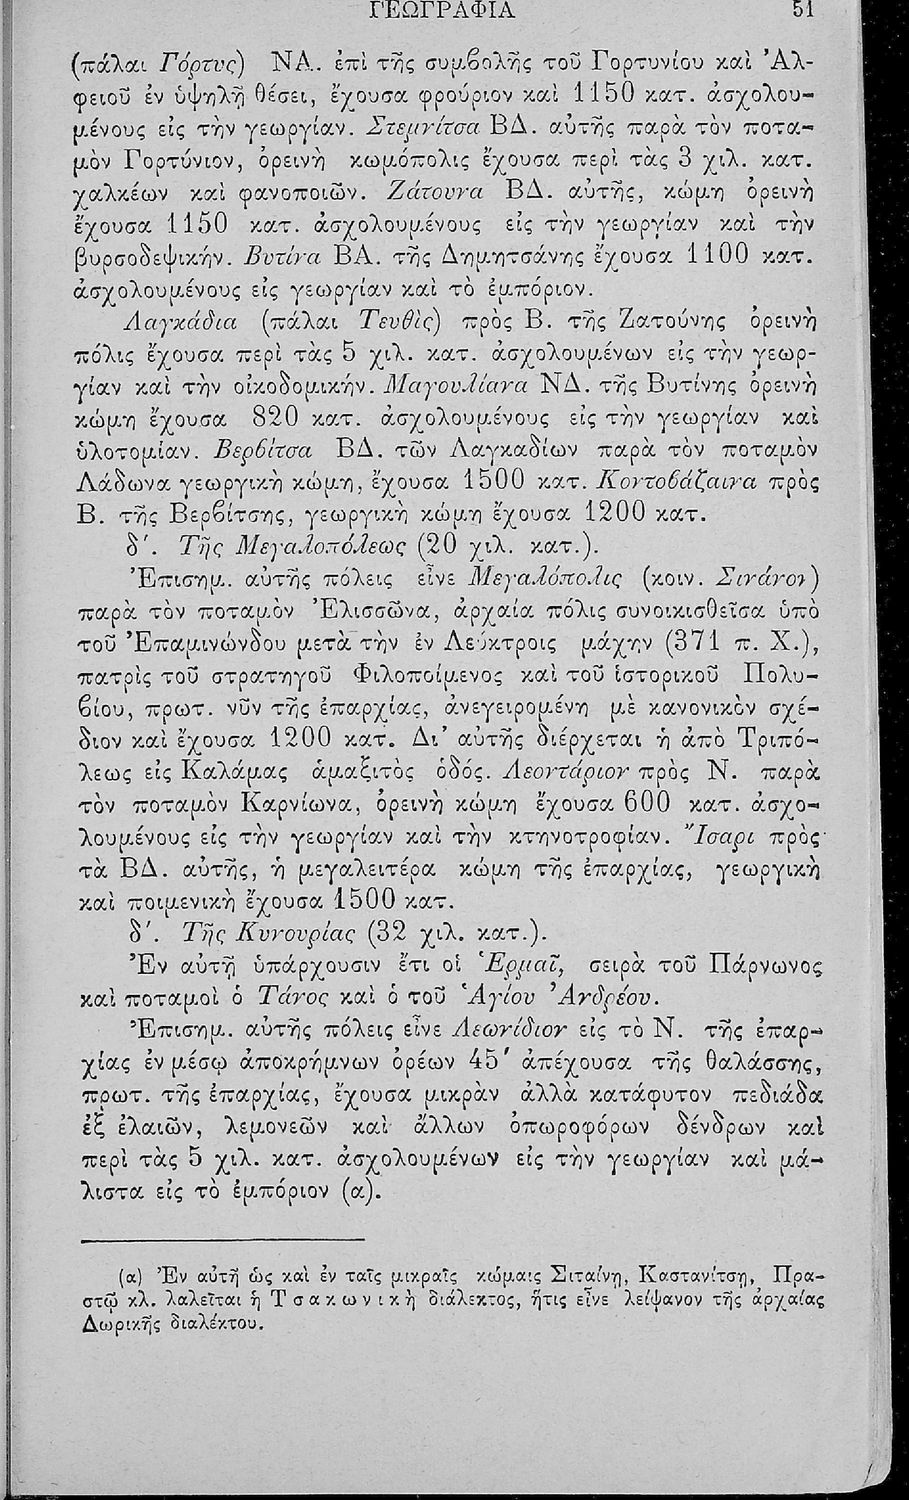 ΓΕΩΓΡΑΦΙΑ 51
(πάλαι Γόρτυς) ΝΑ. ἐπὶ τῆς συμβολῆς τοῦ Γορτυνίου καὶ Ἀλ-
φειοῦ ἐν ὑψηλῇ θέσει, ἔχουσα φρούριον καὶ 1150 κατ. ἀσχολου-
μένους εἰς τὴν γεωργίαν. Στεμνίτσα ΒΔ. αὐτῆς παρὰ τὸν ποτα-
μὸν Γορτύνιον, ὀρεινὴ κωμόπολις ἔχουσα περὶ τὰς 3 χιλ. κατ.
χαλκέων καὶ φανοποιῶν. Ζάτουνα ΒΔ. αὐτῆς, κώμη ὀρεινὴ
ἔχουσα 1150 κατ. ἀσχολουμένους εἰς τὴν γεωργίαν καὶ τὴν
βυρσοδεψικήν. Βυτίνα ΒΑ. τῆς Δημητσάνης ἔχουσα 1100 κατ.
ἀσχολουμένους εἰς γεωργίαν καὶ τὸ ἐμπόριον.
Λαγκάδια (πάλαι Τευθὶς) πρὸς Β. τῆς Ζατούνης ὀρεινὴ
πόλις ἔχουσα περὶ τὰς 5 χιλ. κατ. ἀσχολουμένων εἰς τὴν γεωρ-
γίαν καὶ τὴν οἰκοδομικήν. Μαγουλίανα ΝΔ. τῆς Βυτίνης ὀρεινὴ
κώμη ἔχουσα 820 κατ. ἀσχολουμένους εἰς τὴν γεωργίαν καὶ
ὑλοτομίαν. Βερβίτσα ΒΔ. τῶν Λαγκαδίων παρὰ τὸν ποταμὸν
Λάδωνα γεωργικὴ κώμη, ἔχουσα 1500 κατ. Κοντοβάζαινα πρὸς
Β. τῆς Βερβίτσης, γεωργικὴ κώμη ἔχουσα 1200 κατ.
δ΄. Τῆς Μεγαλοπόλεως (20 χιλ. κατ.).
Ἐπισημ. αὐτῆς πόλεις εἶνε Μεγαλόπολις (κοιν. Σινάνον)
παρὰ τὸν ποταμὸν Ἐλισσῶνα, ἀρχαία πόλις συνοικισθεῖσα ὑπὸ
τοῦ Ἐπαμινώνδου μετὰ τὴν ἐν Λεύκτροις μάχην (371 π. Χ.),
πατρὶς τοῦ στρατηγοῦ Φιλοποίμενος καὶ τοῦ ἱστορικοῦ Πολυ-
βίου, πρωτ. νῦν τῆς ἐπαρχίας, ἀνεγειρομένη μὲ κανονικὸν σχέ-
διον καὶ ἔχουσα 1200 κατ. Δι' αὐτῆς διέρχεται ἡ ἀπὸ Τριπό-
λεως εἰς Καλάμας ἁμαξιτὸς ὁδός. Λεοντάριον πρὸς Ν. παρὰ
τὸν ποταμὸν Καρνίωνα, ὀρεινὴ κώμη ἔχουσα 600 κατ. ἀσχο-
λουμένους εἰς τὴν γεωργίαν καὶ τὴν κτηνοτροφίαν. Ἴσαρι πρὸς
τὰ ΒΔ. αὐτῆς, ἡ μεγαλειτέρα κώμη τῆς ἐπαρχίας, γεωργικὴ
καὶ ποιμενικὴ ἔχουσα 1500 κατ.
δ΄. Τῆς Κυνουρίας (32 χιλ. κατ.).
Ἐν αὐτῇ ὑπάρχουσιν ἔτι οἱ Ἑρμαῖ, σειρὰ τοῦ Πάρνωνος
καὶ ποταμοὶ ὁ Τάνος καὶ ὁ τοῦ Ἁγίου Ἀνδρέου.
Ἐπισημ. αὐτῆς πόλεις εἶνε Λεωνίδιον εἰς τὸ Ν. τῆς ἐπαρ-
χίας ἐν μέσῳ ἀποκρήμνων ὀρέων 45' ἀπέχουσα τῆς θαλάσσης,
πρωτ. τῆς ἐπαρχίας, ἔχουσα μικρὰν ἀλλὰ κατάφυτον πεδιάδα
ἐξ ἐλαιῶν, λεμονεῶν καὶ ἄλλων ὀπωροφόρων δένδρων καὶ
περὶ τὰς 5 χιλ. κατ. ἀσχολουμένων εἰς τὴν γεωργίαν καὶ μά-
λιστα εἰς τὸ ἐμπόριον (α).
(α) Ἐν αὐτῇ ὡς καὶ ἐν ταῖς μικραῖς κώμαις Σιταίνῃ, Καστανίτσῃ, Πρα-
στῷ κλ. λαλεῖται ἡ Τσακωνικὴ διάλεκτος, ἥτις εἶνε λείψανον τῆς ἀρχαίας
Δωρικῆς διαλέκτου.